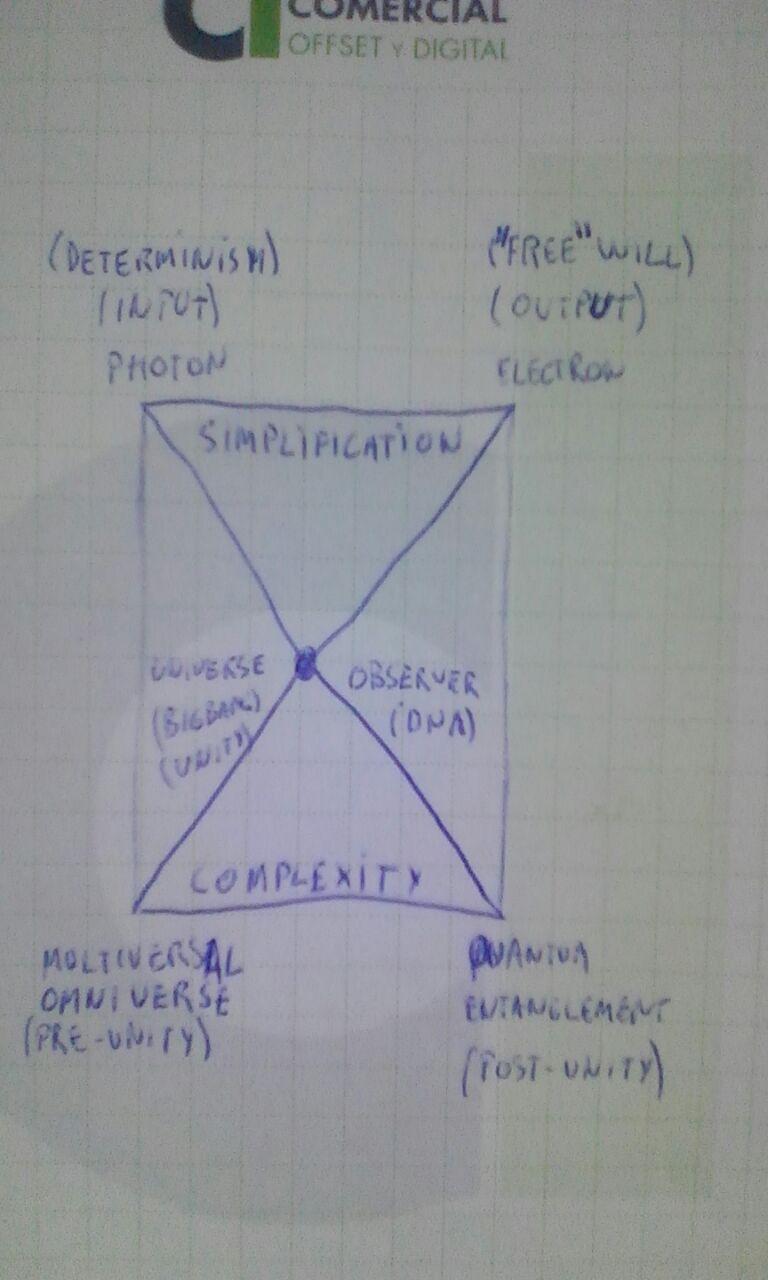 COMERCIAL
OFFSET Y DIGITAL
(DETERMINISM)
(INPUT)
PHOTON
("FREE" WILL)
(OUTPUT)
ELECTRON
SIMPLIFICATION
UNIVERSE
(BIGBANG)
(UNITY)
OBSERVER
(DNA)
COMPLEXITY
MULTIVERSAL
OMNIVERSE
(PRE-UNITY)
QUANTUM
ENTANGLEMENT
(POST-UNITY)